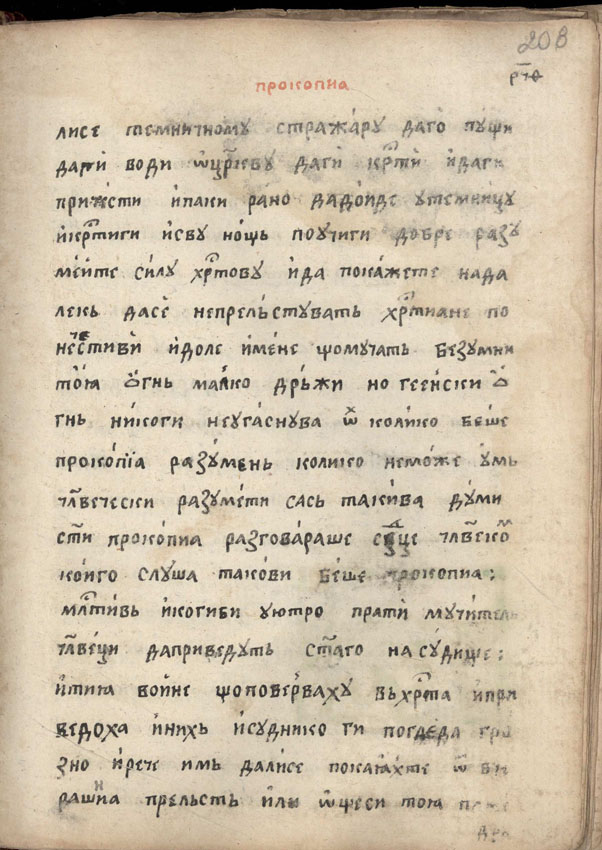 208
рт҃ѳ
прокопиа
лисе темничному стража́ру даго пꙋщи
дати води ѿцр҃кву даги́ кр҃ти́ и́даги
причести и́паки ра́но дадо́иде утемницу
и́кр҃тиги и́сву нощь поꙋчиги добре разꙋ
ме́ите силу хр҃тову и́да покажете нада
лекь дасе непрельстувать хр҃тиане по
нечⷭ҇тиви́ и́доле и́мене щомучать безꙋмни
то́ꙗ ѻ҆гнь ма́лко дрьжи но геенски ѻ҆
гнь никоги неуга́снꙋва ѽ колико беше
проко́пїа разу́мень колико немо́же ꙋмь
чл҃вечески разꙋме́ти сась таки́ва дꙋ́ми
ст҃и проко́пиа разгова́раше срⷣце чл҃вско
кои́го слуша такови беше прокопиа :
мл҃тивь и́когиби ꙋютро прати́ мꙋчитель
чл҃ве́ци даприведꙋть ст҃аго насу́дище :
и́тиꙗ во́ине щоповерваху вьхр҃та и́при
ведоха и́нихь и́сꙋднико ги погледа гро
зно и́рече имь далисе покаꙗхте ѿ ви
рашна прельсть и́лы ѿщеси тоꙗ